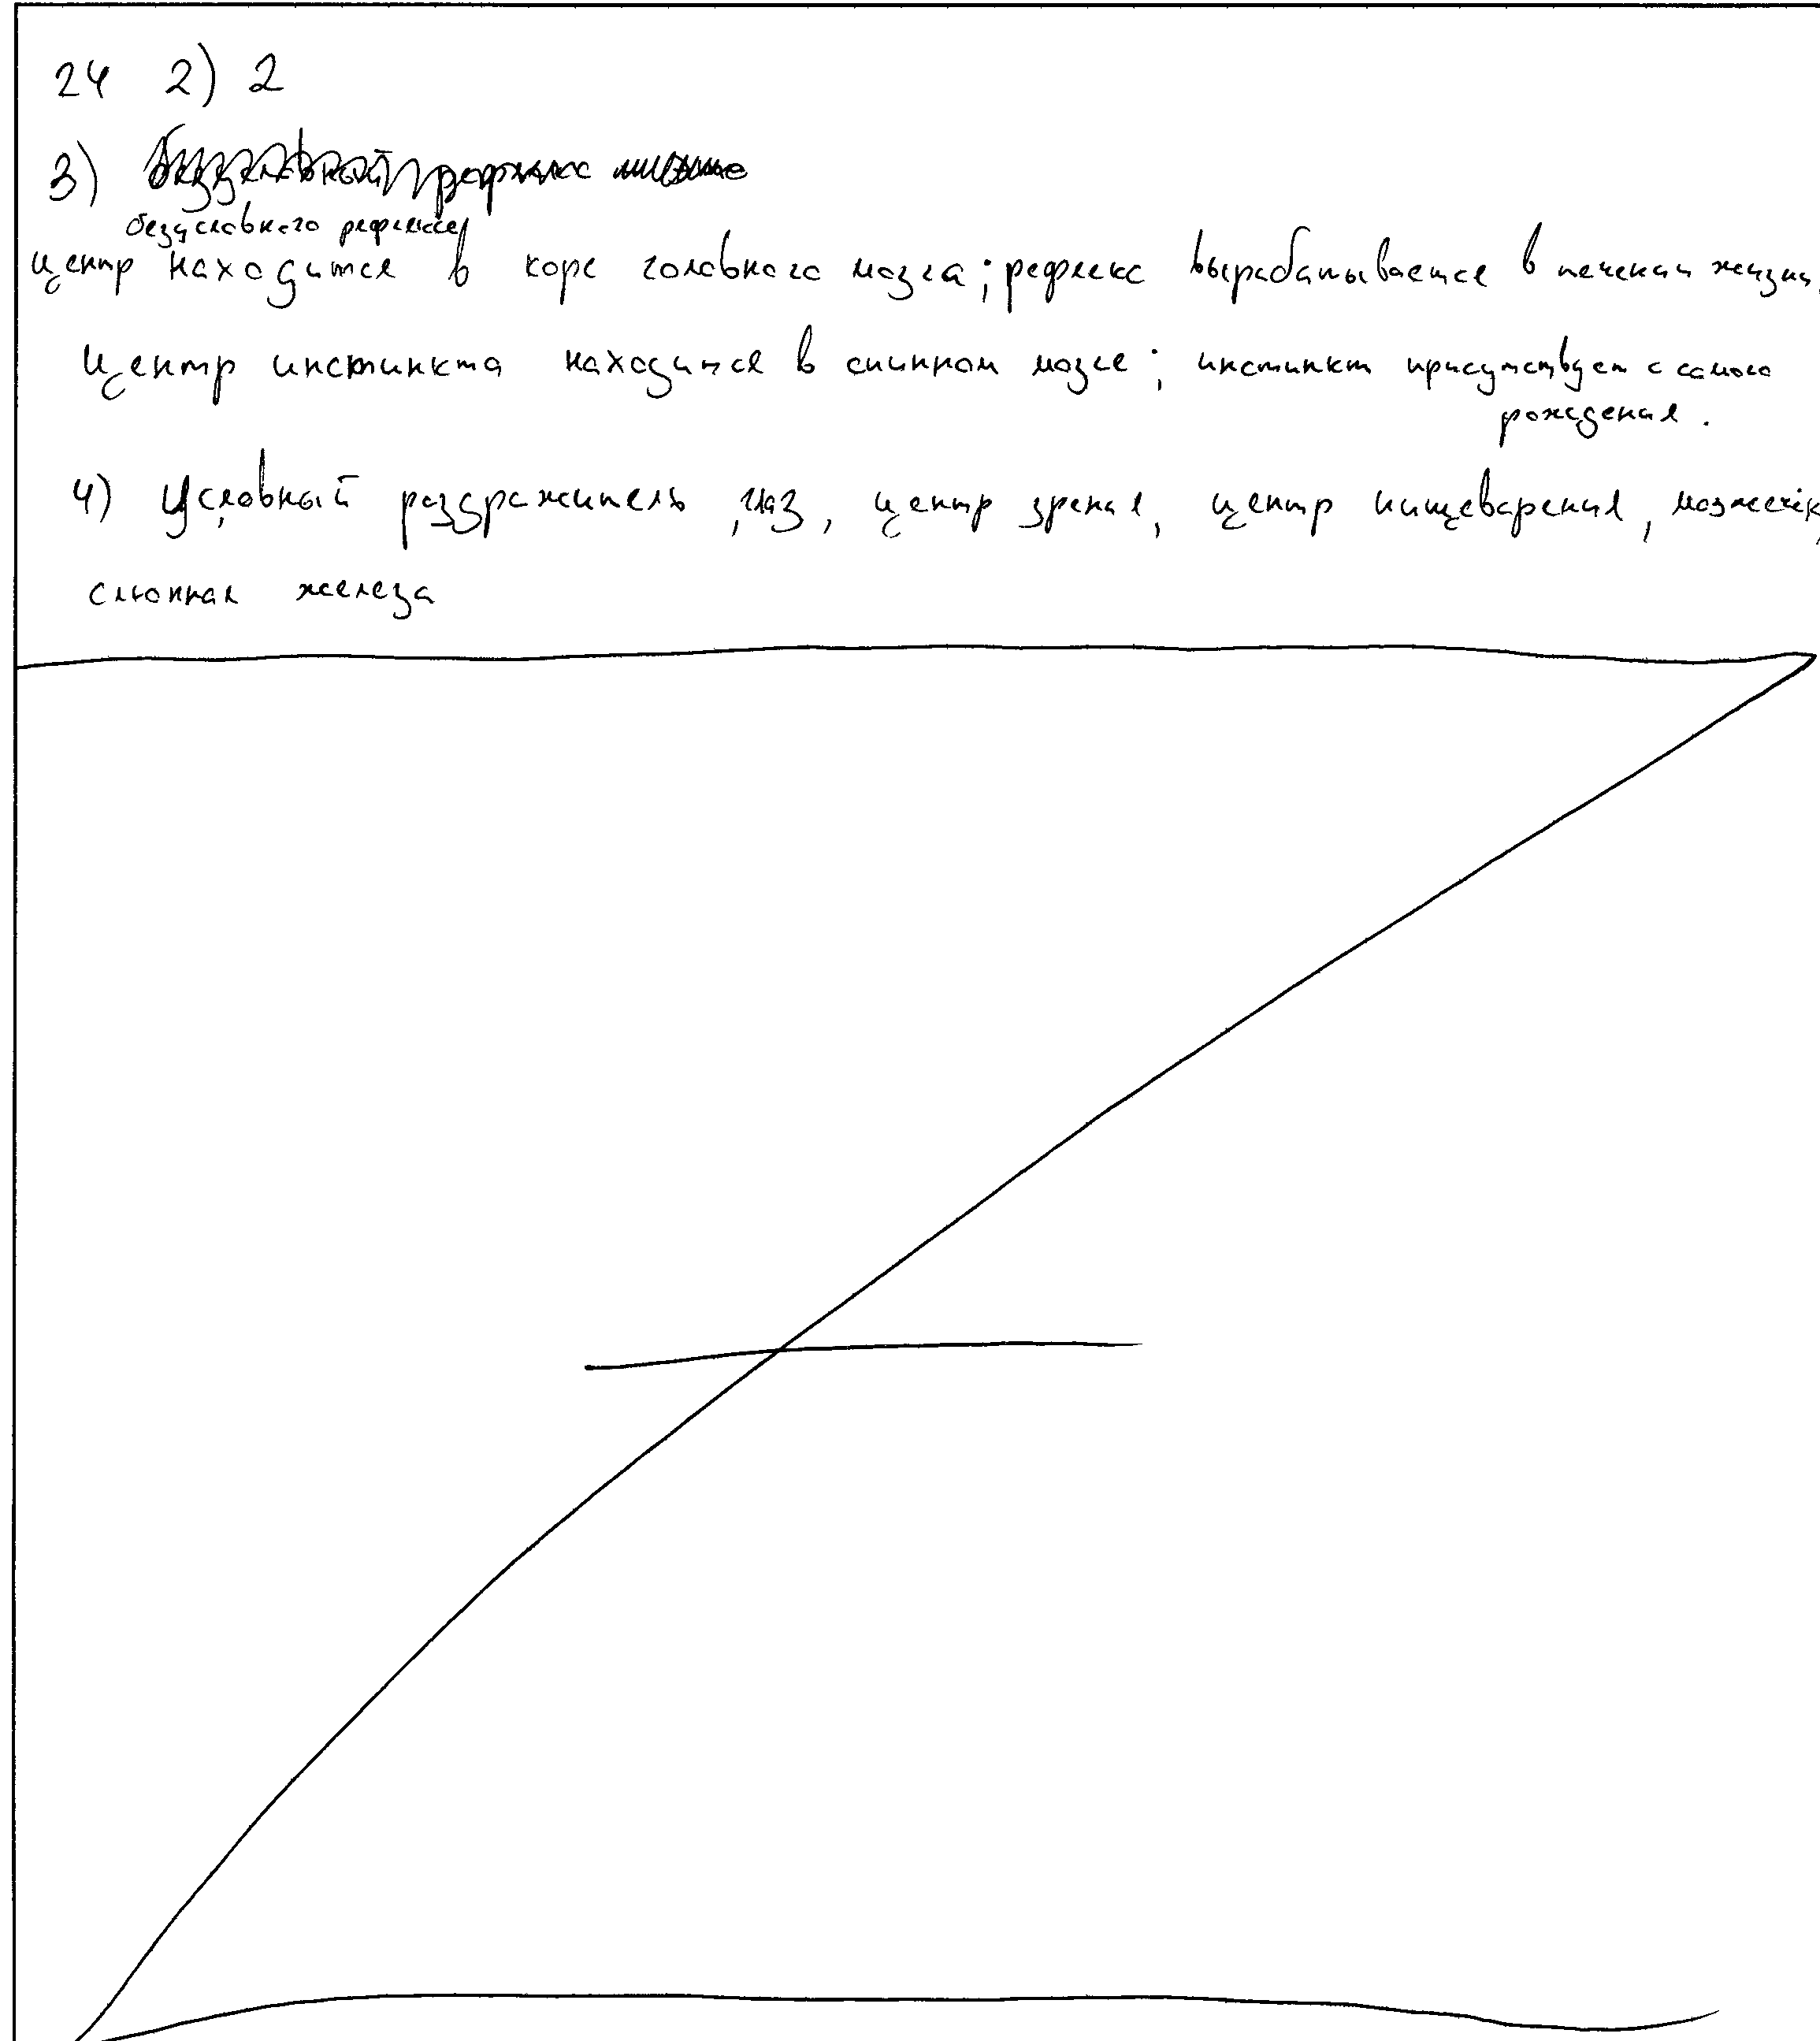 24 2) 2
3)
безусловного рефлекса
центр находится в коре головного мозга; рефлекс вырабатывается в течении жизни,
центр инстинкта находится в спинном мозге; инстинкт присутствует с самого
рождения.
4) Условный раздражитель, глаз, центр зрения, центр пищеварения, мозжечок,
слюнная железа